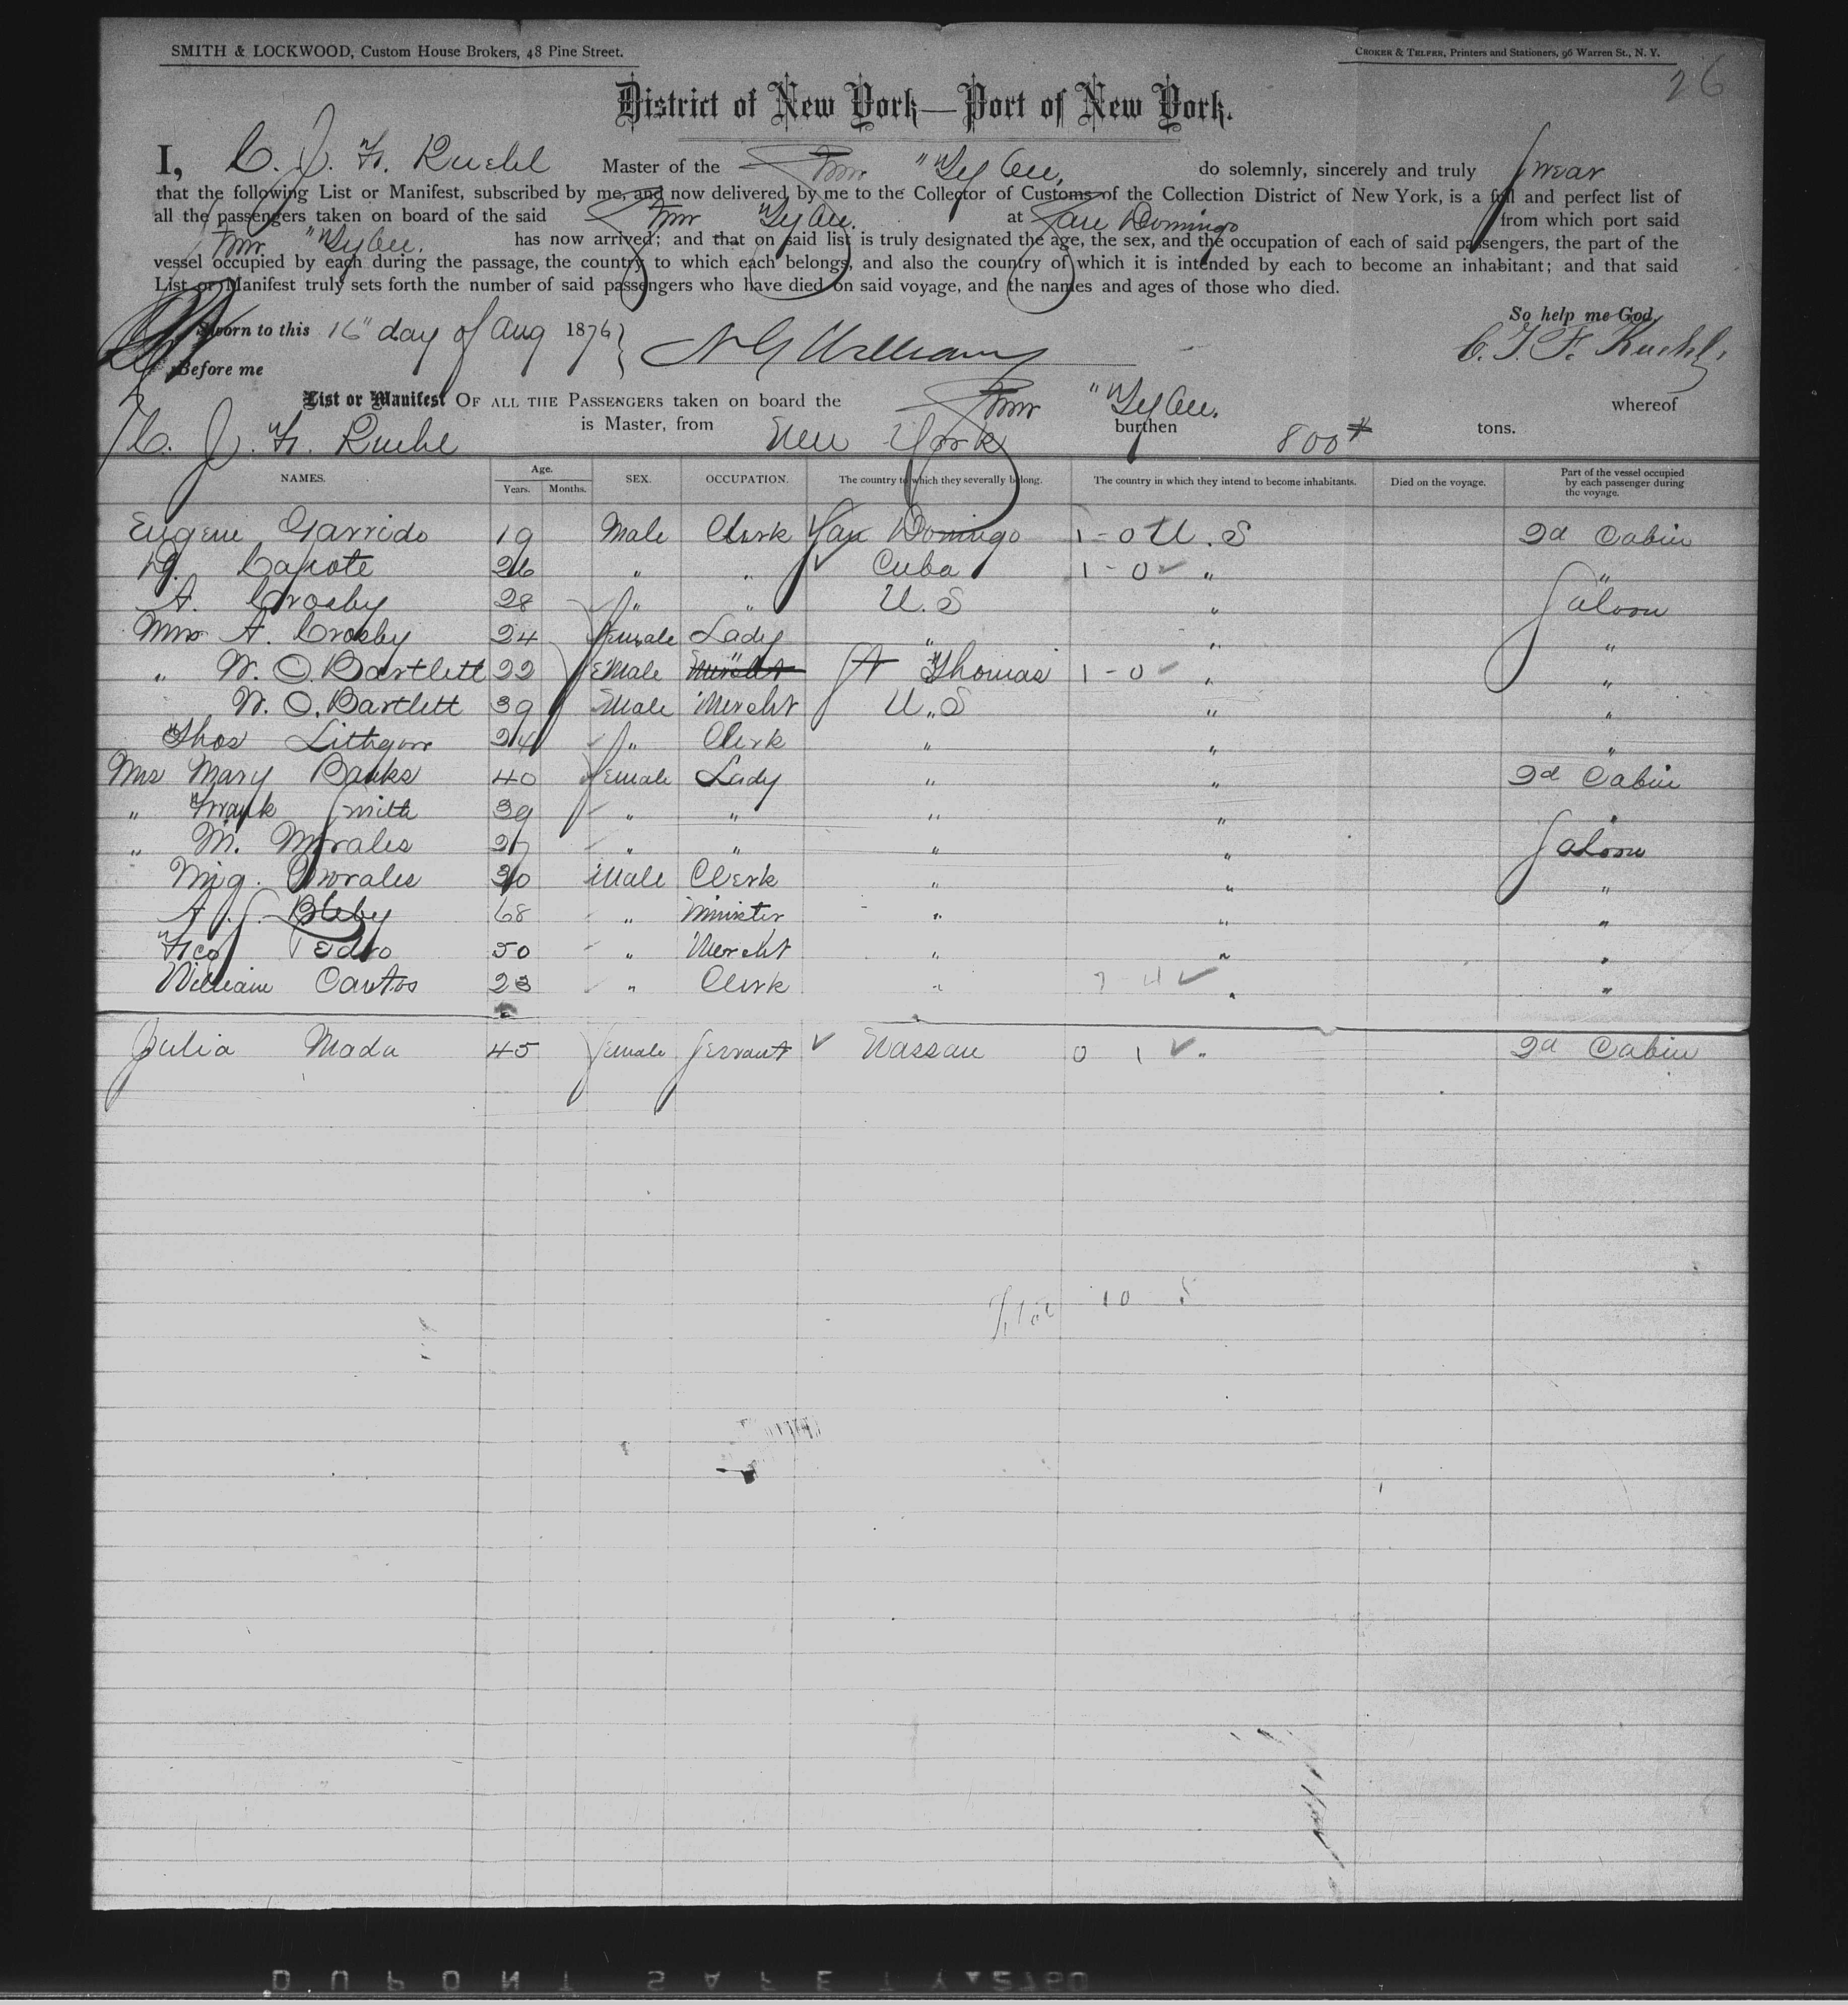 SMITH & LOCKWOOD, Custom House Brokers, 48 Pine Street.
CROKER & TELFER, Printers and Stationers, 96 Warren St., N. Y.
26
District of New York—Port of New York.
I, C. J. F. Kuehl Master of the Stmr "Tybee, do solemnly, sincerely and truly Swear
that the following List or Manifest, subscribed by me, and now delivered by me to the Collector of Customs of the Collection District of New York, is a full and perfect list of
all the passengers taken on board of the said Stmr Tybee. at San Domingo from which port said
Stmr "Tybee. has now arrived; and that on said list is truly designated the age, the sex, and the occupation of each of said passengers, the part of the
vessel occupied by each during the passage, the country to which each belongs, and also the country of which it is intended by each to become an inhabitant; and that said
List or Manifest truly sets forth the number of said passengers who have died on said voyage, and the names and ages of those who died.
So help me God,
Sworn to this 16" day of Aug 1876 N G Williams C. J. F. Kuehl
Before me
List or Manifest OF ALL THE PASSENGERS taken on board the Stmr "Tybee. whereof
C. J. F. Kuehl is Master, from New York burthen 800 tons.
NAMES. Age. Years. Months. SEX. OCCUPATION. The country to which they severally belong. The country in which they intend to become inhabitants. Died on the voyage. Part of the vessel occupied by each passenger during the voyage.
Eugene Garrido 19 Male Clerk San Domingo 1-0 U.S 2d Cabin
D. Capote 26 " " Cuba 1-0 " "
A. Crosby 28 " " U.S " Saloon
Mrs A. Crosby 24 female Lady " " "
" W. O. Bartlett 22 female " St Thomas 1-0 " "
W. O. Bartlett 39 Male Mercht U.S " "
Thos Lithgow 24 " Clerk " " "
Mrs Mary Banks 40 female Lady " " 2d Cabin
" Frank Smith 39 " " " " "
" M. Morales 27 " " " " Saloon
Mig. Morales 30 Male Clerk " " "
A. S. Bleby 68 " Minister " " "
Fco Pedro 50 " Mercht " " "
William Cantos 23 " Clerk " 7 4 " "
Julia Mada 45 female Servant Nassau 0 1 " 2d Cabin
Total 10 5
DUPONT SAFETY 2760